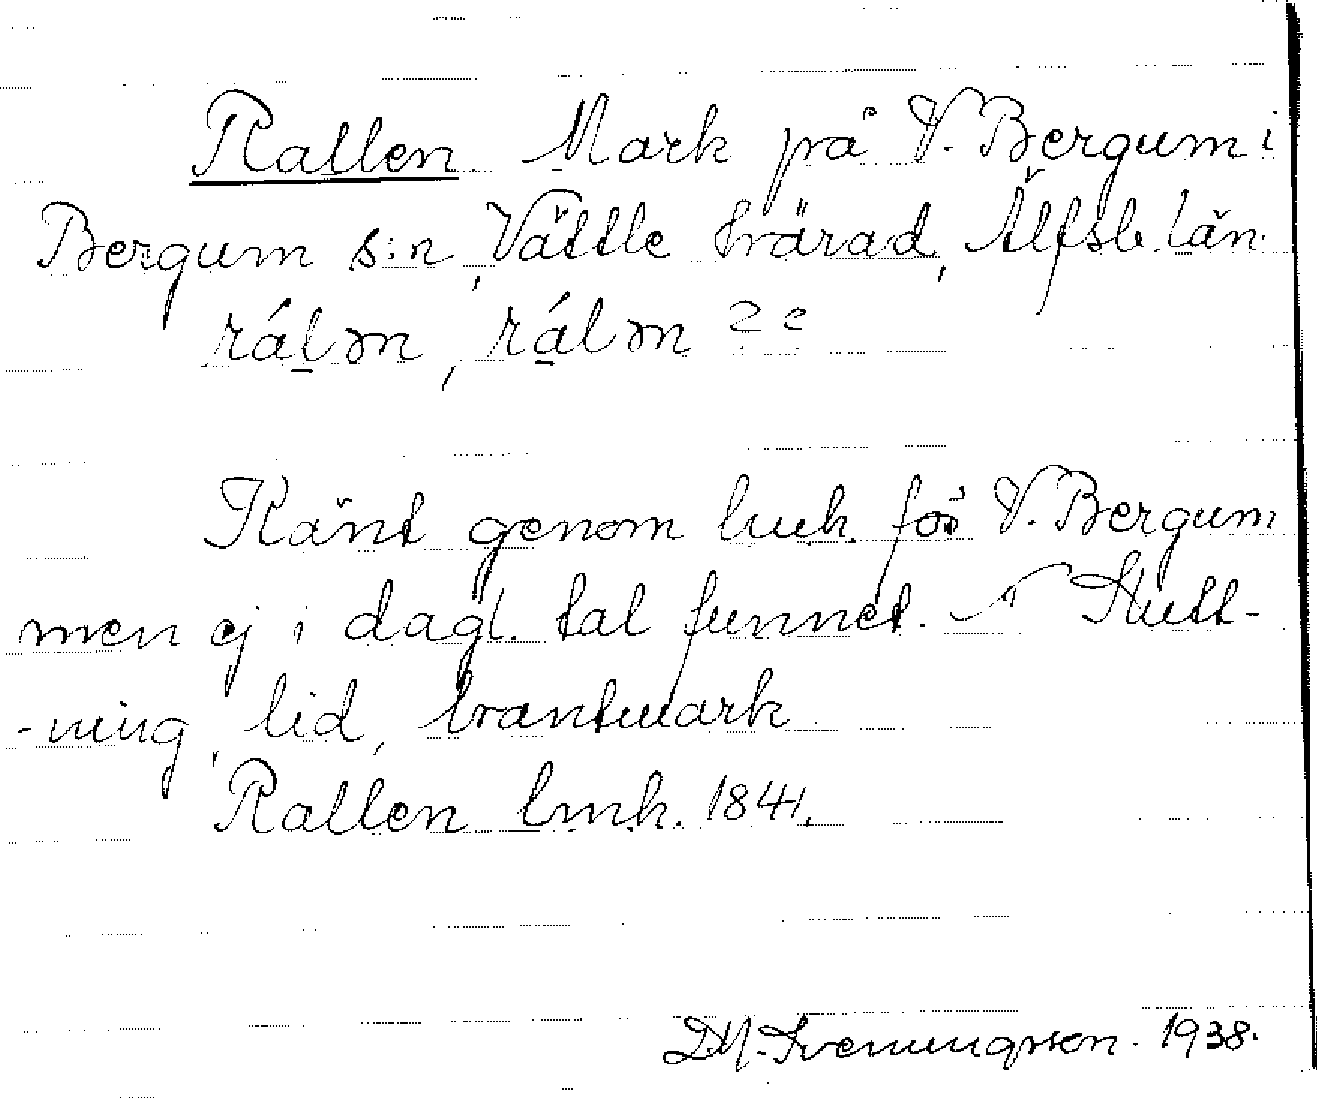 Rallen. Mark på V. Bergum i
Bergum s:n, Vättle härad, Älfsb. län.
rálən, rálən
Känt genom luuk. för V. Bergum
men ej i dagl. tal funnet. Slutt-
-ning, lid, brantmark.
Rallen lmk. 1841.
D.M. Sveningsson. 1938.